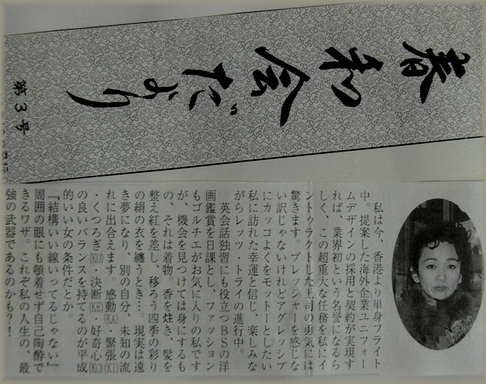 着和会だより
第3号
私は今、香港より単身フライト
中。提案した海外企業ユニフォー
ムデザインの採用と契約が実現す
れば、業界初という名誉になるら
しく、この超重大な任務を私にイ
ントゥラクトした上司の勇気には
驚きます。プレッシャーを感じな
い訳じゃないけれど
にカッコよくをモットーとしたい
私に訪れた幸運と信じ、楽しみな
がらレッツ・トライの進行中。
英会話独習にも役立つBSの洋
画鑑賞を日課とし、ファッション
もゴルチエがお気に入りの私です
が、機会を見つけては身にするも
の、それは着物。香を炷き、髪を
整え紅を差し、移ろう四季の彩り
の絹の衣を纏うとき…、現実は遠
き夢になり、別の自分、未知の流
れに出合えます。感動(KA)・緊張(KI)
・くつろぎ(KU)・決断(KE)・好奇心(KO)
の良いバランスを持てるのが平成
的いい女の条件だとか。
『結構いい線いってるじゃない』
周囲の眼にも頓着せず自己陶酔で
きるワザ。これぞ私の人生の、最
強の武器であるのかも?!